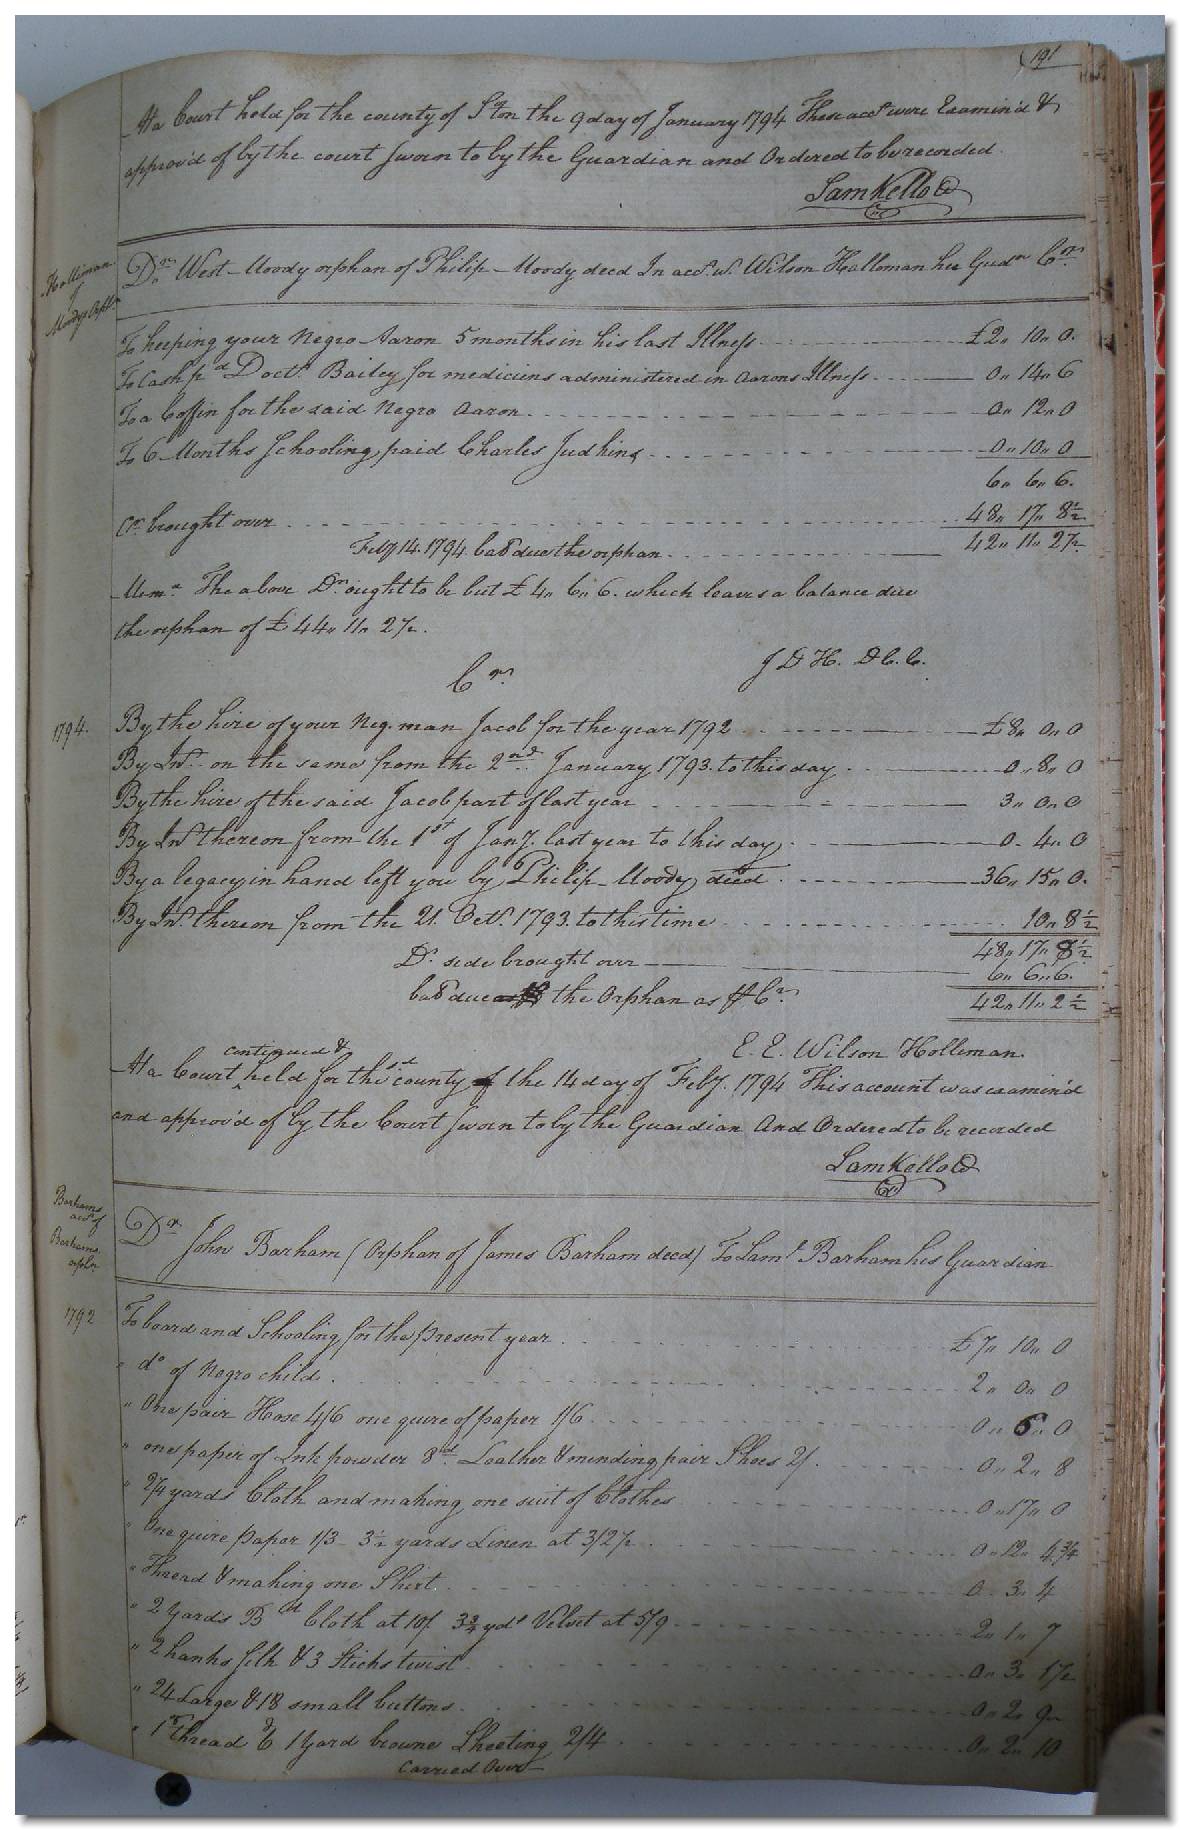 191
At a Court held for the county of S'ton the 9 day of January 1794 These accts were Examin'd &
approv'd of by the court sworn to by the Guardian and Ordered to be recorded.
Sam Kello Cl
Holliman
Moodys Orpn
Dr West Moody orphan of Philip Moody decd In acct w. Wilson Holloman his Gudn Cr
To keeping your Negro Aaron 5 months in his last Illness £2„ 10„ 0.
To Cash pd Doctr Bailey for medicins administered in Aarons Illness 0„ 14„ 6
To a Coffin for the said Negro Aaron 0„ 12„ 0
To 6 Months Schooling paid Charles Judkins 0„ 10„ 0
6„ 6„ 6.
Cr brought over 48„ 17„ 8½
Feby 14. 1794 bale due the orphan 42„ 11„ 2½
Mema The above Dr ought to be but £4„ 6„ 6. which leaves a balance due
the orphan of £44„ 11„ 2½.
J D H. D C. C.
Cr
1794. By the hire of your Neg. man Jacob for the year 1792 £8„ 0„ 0
By Int on the same from the 2nd January 1793. to this day 0„ 8„ 0
By the hire of the said Jacob part of last year 3„ 0„ 0
By Int thereon from the 1st of Jany. last year to this day 0„ 4„ 0
By a legacy in hand left you by Philip Moody decd 36„ 15„ 0.
By Int. thereon from the 21. Octr. 1793. to this time 10„ 8½
48„ 17„ 8½
Dr. side brought over 6„ 6„ 6.
bale due the Orphan as pr Cr 42„ 11„ 2½
E. E. Wilson Holleman.
continued &
At a Court held for the sd county the 14 day of Feby. 1794 This account was examin'd
and approv'd of by the Court sworn to by the Guardian And Ordered to be recorded
Sam Kello Cl
Barhams
acct of
Barhams
orpn
Dr John Barham (Orphan of James Barham decd) To Saml Barham his Guardian
1792 To board and Schooling for the present year £7„ 10„ 0
„ do of Negro child 2„ 0„ 0
„ One pair Hose 4/6 one quire of paper 1/6 0„ 6„ 0
„ one paper of Ink powder 8d Leather & mending pair Shoes 2/. 0„ 2„ 8
„ 2¼ yards Cloth and making one suit of Clothes 0„ 17„ 0
„ One quire paper 1/3 3½ yards Linen at 3/2½ 0„ 12„ 4¾
„ Thread & making one Shirt 0„ 3„ 4
„ 2 yards Bd Cloth at 10/ 3¾ yds Velvet at 5/9 2„ 1„ 7
„ 2 hanks silk & 3 Sticks twist 0„ 3„ 1½
„ 24 Large & 18 small buttons 0„ 2„ 9
„ thread & 1 Yard browne Sheeting 2/4 0„ 2„ 10
Carried Over